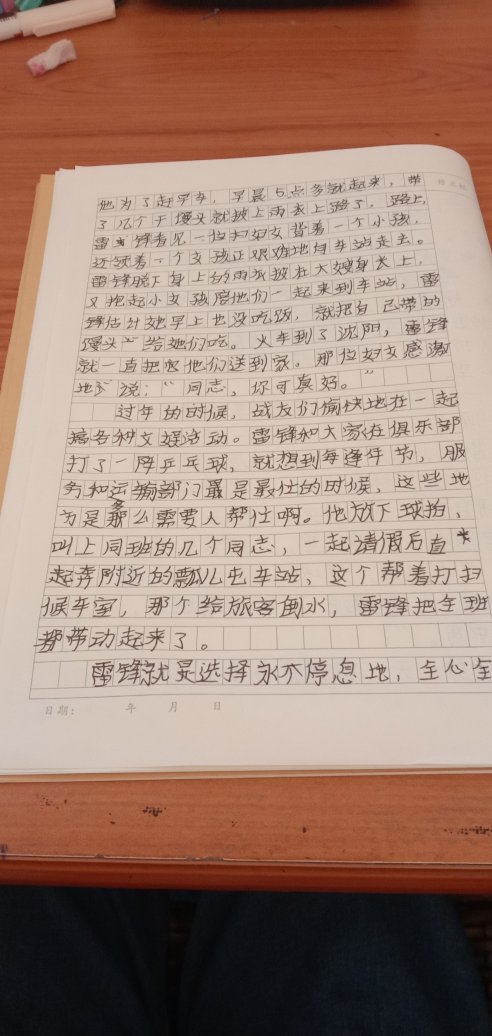 他为了赶早车，早晨5点多就起来，带
了几个干馒头就披上雨衣上路了。路上，
雷锋看见一位妇女背着一个小孩，
还领着一个女孩正艰难地向车站走去。
雷锋脱下身上的雨衣披在大嫂身上，
又抱起小女孩陪他们一起来到车站，雷
锋估计她早上也没吃饭，就把自己带的
馒头给她们吃。火车到了沈阳，雷锋
就一直把他们送到家。那位妇女感激
地说：“同志，你可真好。”
过年的时候，战友们愉快地在一起
搞各种文娱活动。雷锋和大家在俱乐部
打了一阵乒乓球，就想到每逢年节，服
务和运输部门最是最忙的时候，这些地
方是多么需要人帮忙啊。他放下球拍，
叫上同班的几个同志，一起请假后直
起奔附近的瓢儿屯车站，这个帮着打扫
候车室，那个给旅客倒水，雷锋把全班
都带动起来了。
雷锋就是选择永不停息地，全心全
日期： 年 月 日